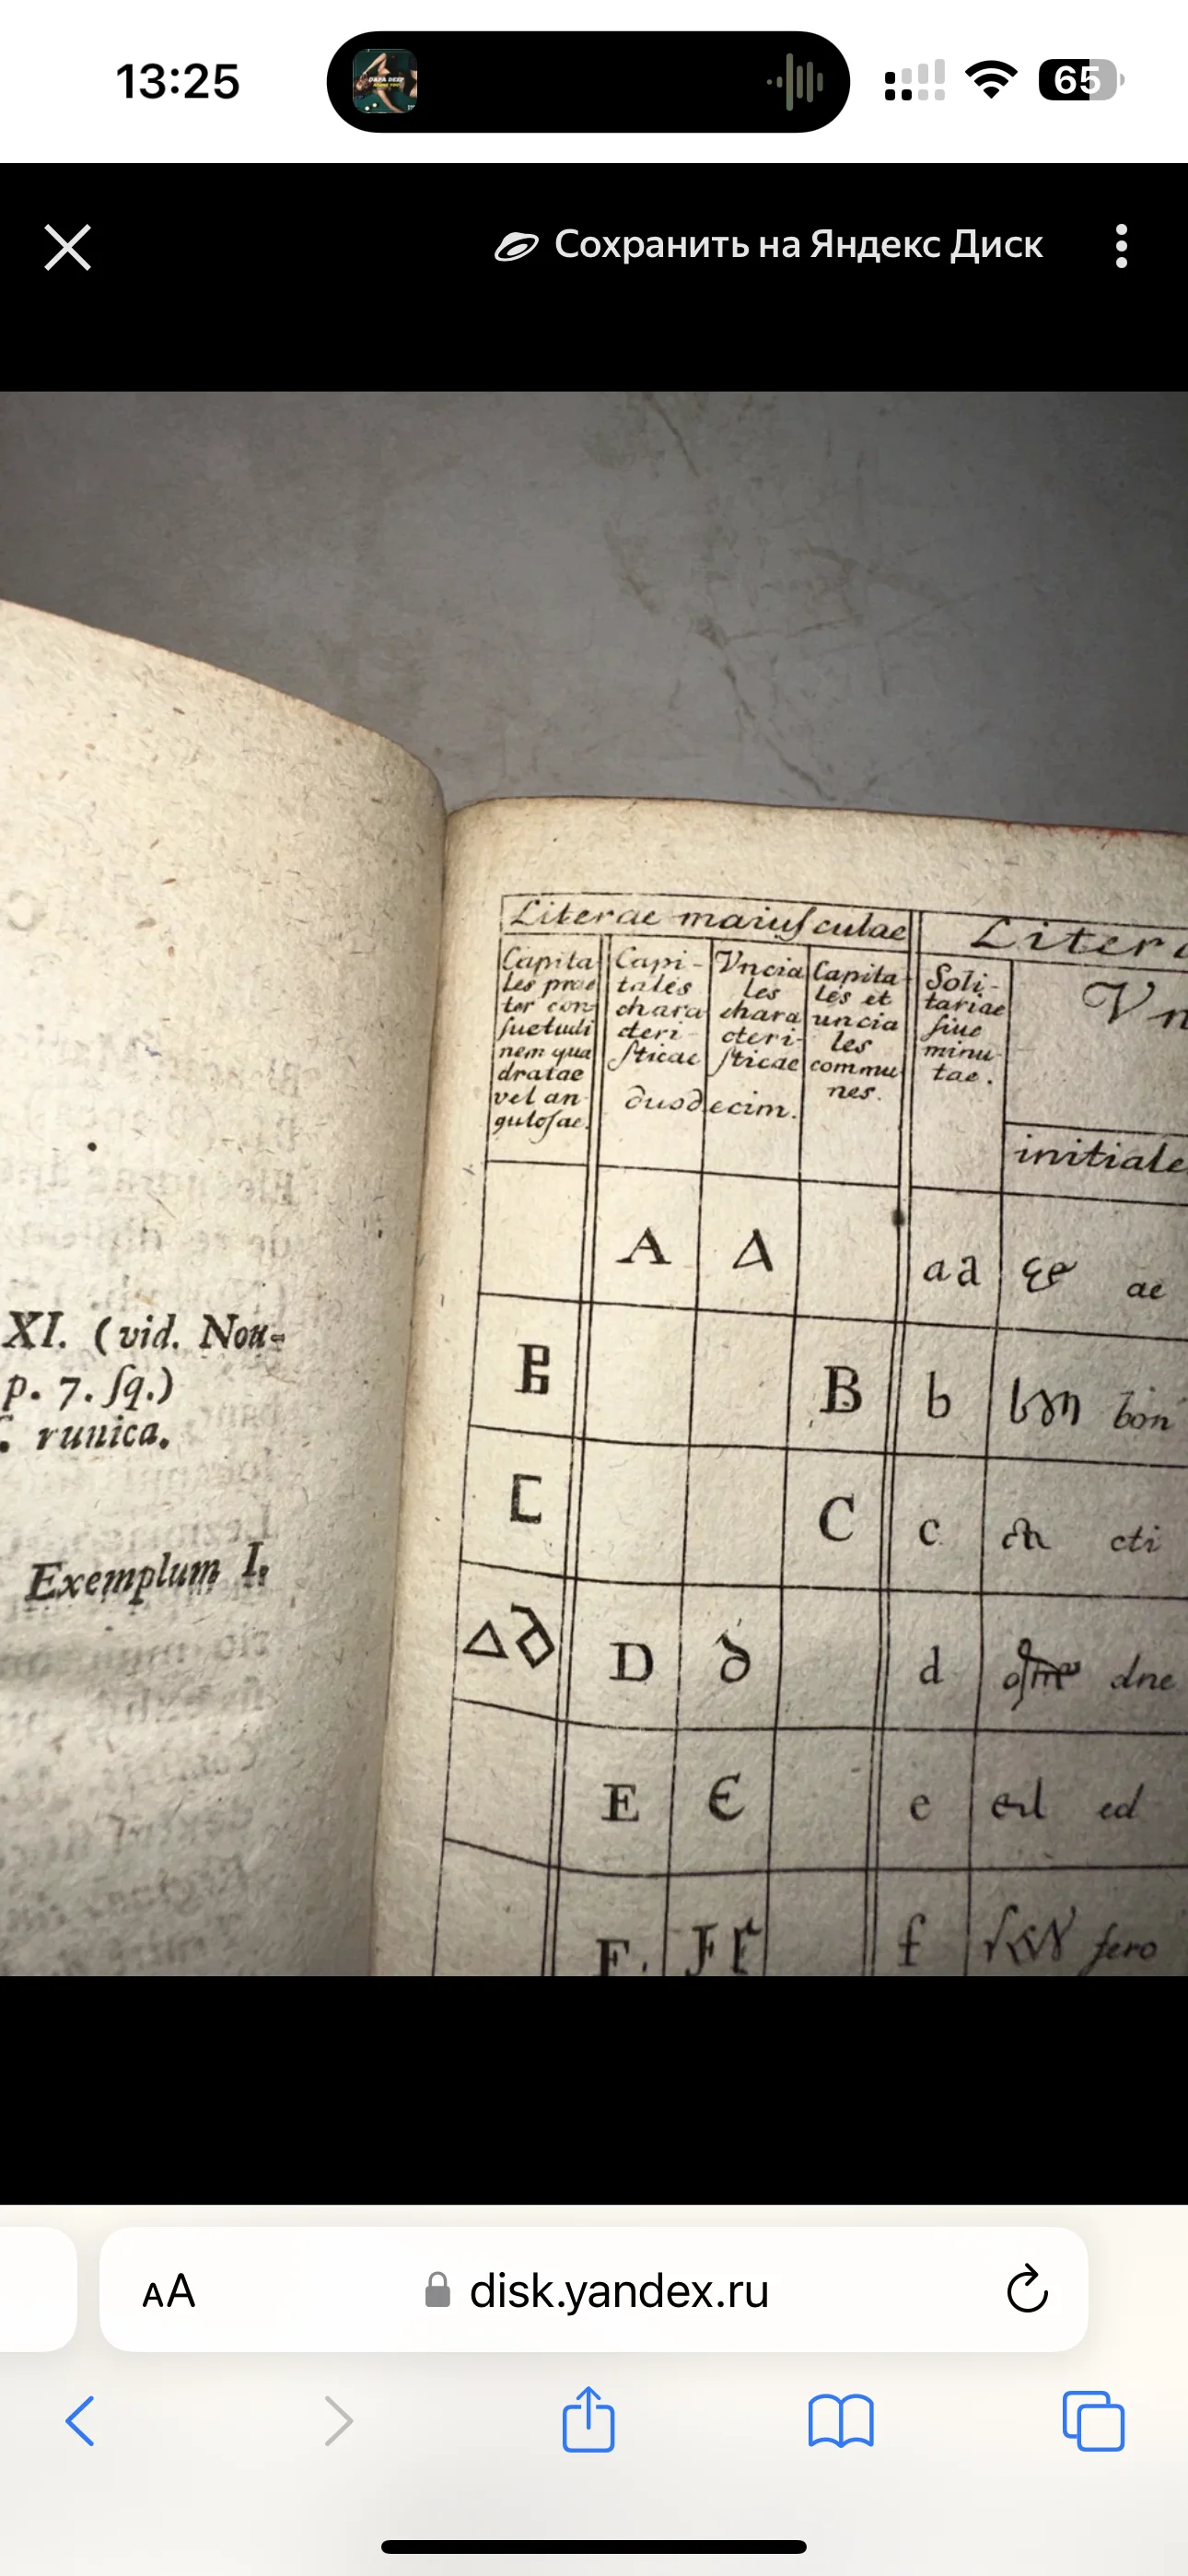 13:25
65
Сохранить на Яндекс Диск
XI. (vid. Nou-
p. 7. ſq.)
runica.
Exemplum I.
Literae maiuſculae
Liter
Capita
les prae
ter con-
ſuetudi
nem qua
dratae
vel an-
guloſae.
Capi-
tales
chara
cteri-
ſticae
Vncia
les
chara
cteri-
ſticae
duodecim.
Capita
les et
uncia
les
commu
nes.
Soli-
tariae
ſiue
minu-
tae.
Vn
initiale
A Δ a a ae
B B b bon
C C c cti
Δ D d dne
E Є e ed
F. f fero
AA disk.yandex.ru